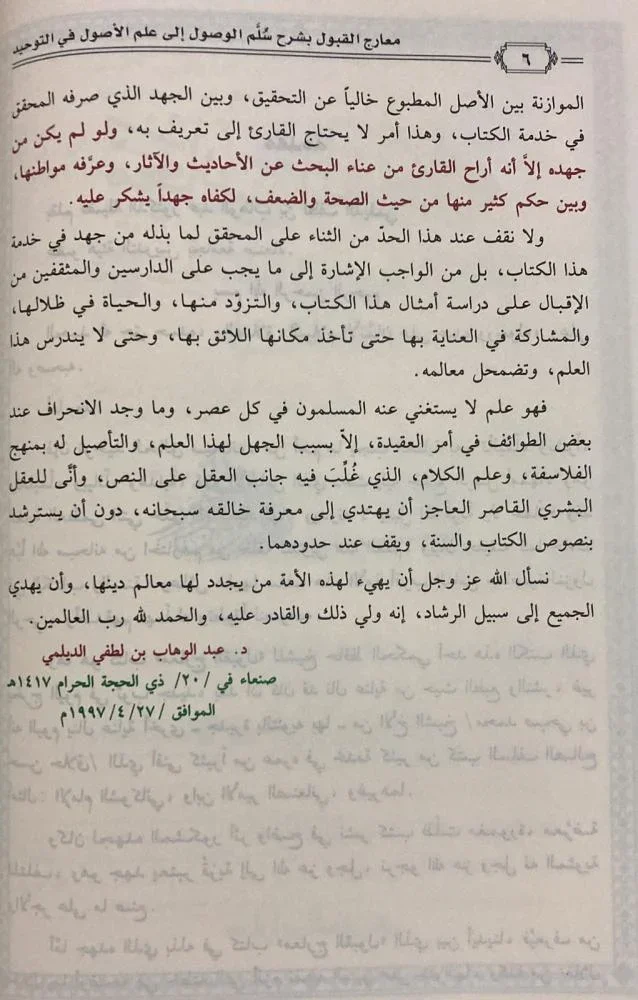 معارج القبول بشرح سُلَّم الوصول إلى علم الأصول في التوحيد
٦
الموازنة بين الأصل المطبوع خالياً عن التحقيق، وبين الجهد الذي صرفه المحقق
في خدمة الكتاب، وهذا أمر لا يحتاج القارئ إلى تعريف به، ولو لم يكن من
جهده إلاَّ أنه أراح القارئ من عناء البحث عن الأحاديث والآثار، وعرَّفه مواطنها،
وبين حكم كثير منها من حيث الصحة والضعف، لكفاه جهداً يشكر عليه.
ولا نقف عند هذا الحدّ من الثناء على المحقق لما بذله من جهد في خدمة
هذا الكتاب، بل من الواجب الإشارة إلى ما يجب على الدارسين والمثقفين من
الإقبال على دراسة أمثال هذا الكتاب، والتزوّد منها، والحياة في ظلالها،
والمشاركة في العناية بها حتى تأخذ مكانها اللائق بها، وحتى لا يندرس هذا
العلم، وتضمحل معالمه.
فهو علم لا يستغني عنه المسلمون في كل عصر، وما وجد الانحراف عند
بعض الطوائف في أمر العقيدة، إلاَّ بسبب الجهل لهذا العلم، والتأصيل له بمنهج
الفلاسفة، وعلم الكلام، الذي غُلِّبَ فيه جانب العقل على النص، وأنَّى للعقل
البشري القاصر العاجز أن يهتدي إلى معرفة خالقه سبحانه، دون أن يسترشد
بنصوص الكتاب والسنة، ويقف عند حدودهما.
نسأل الله عز وجل أن يهيء لهذه الأمة من يجدد لها معالم دينها، وأن يهدي
الجميع إلى سبيل الرشاد، إنه ولي ذلك والقادر عليه، والحمد لله رب العالمين.
د. عبد الوهاب بن لطفي الديلمي
صنعاء في /٢٠/ ذي الحجة الحرام ١٤١٧هـ
الموافق /٢٧/ ٤/ ١٩٩٧م